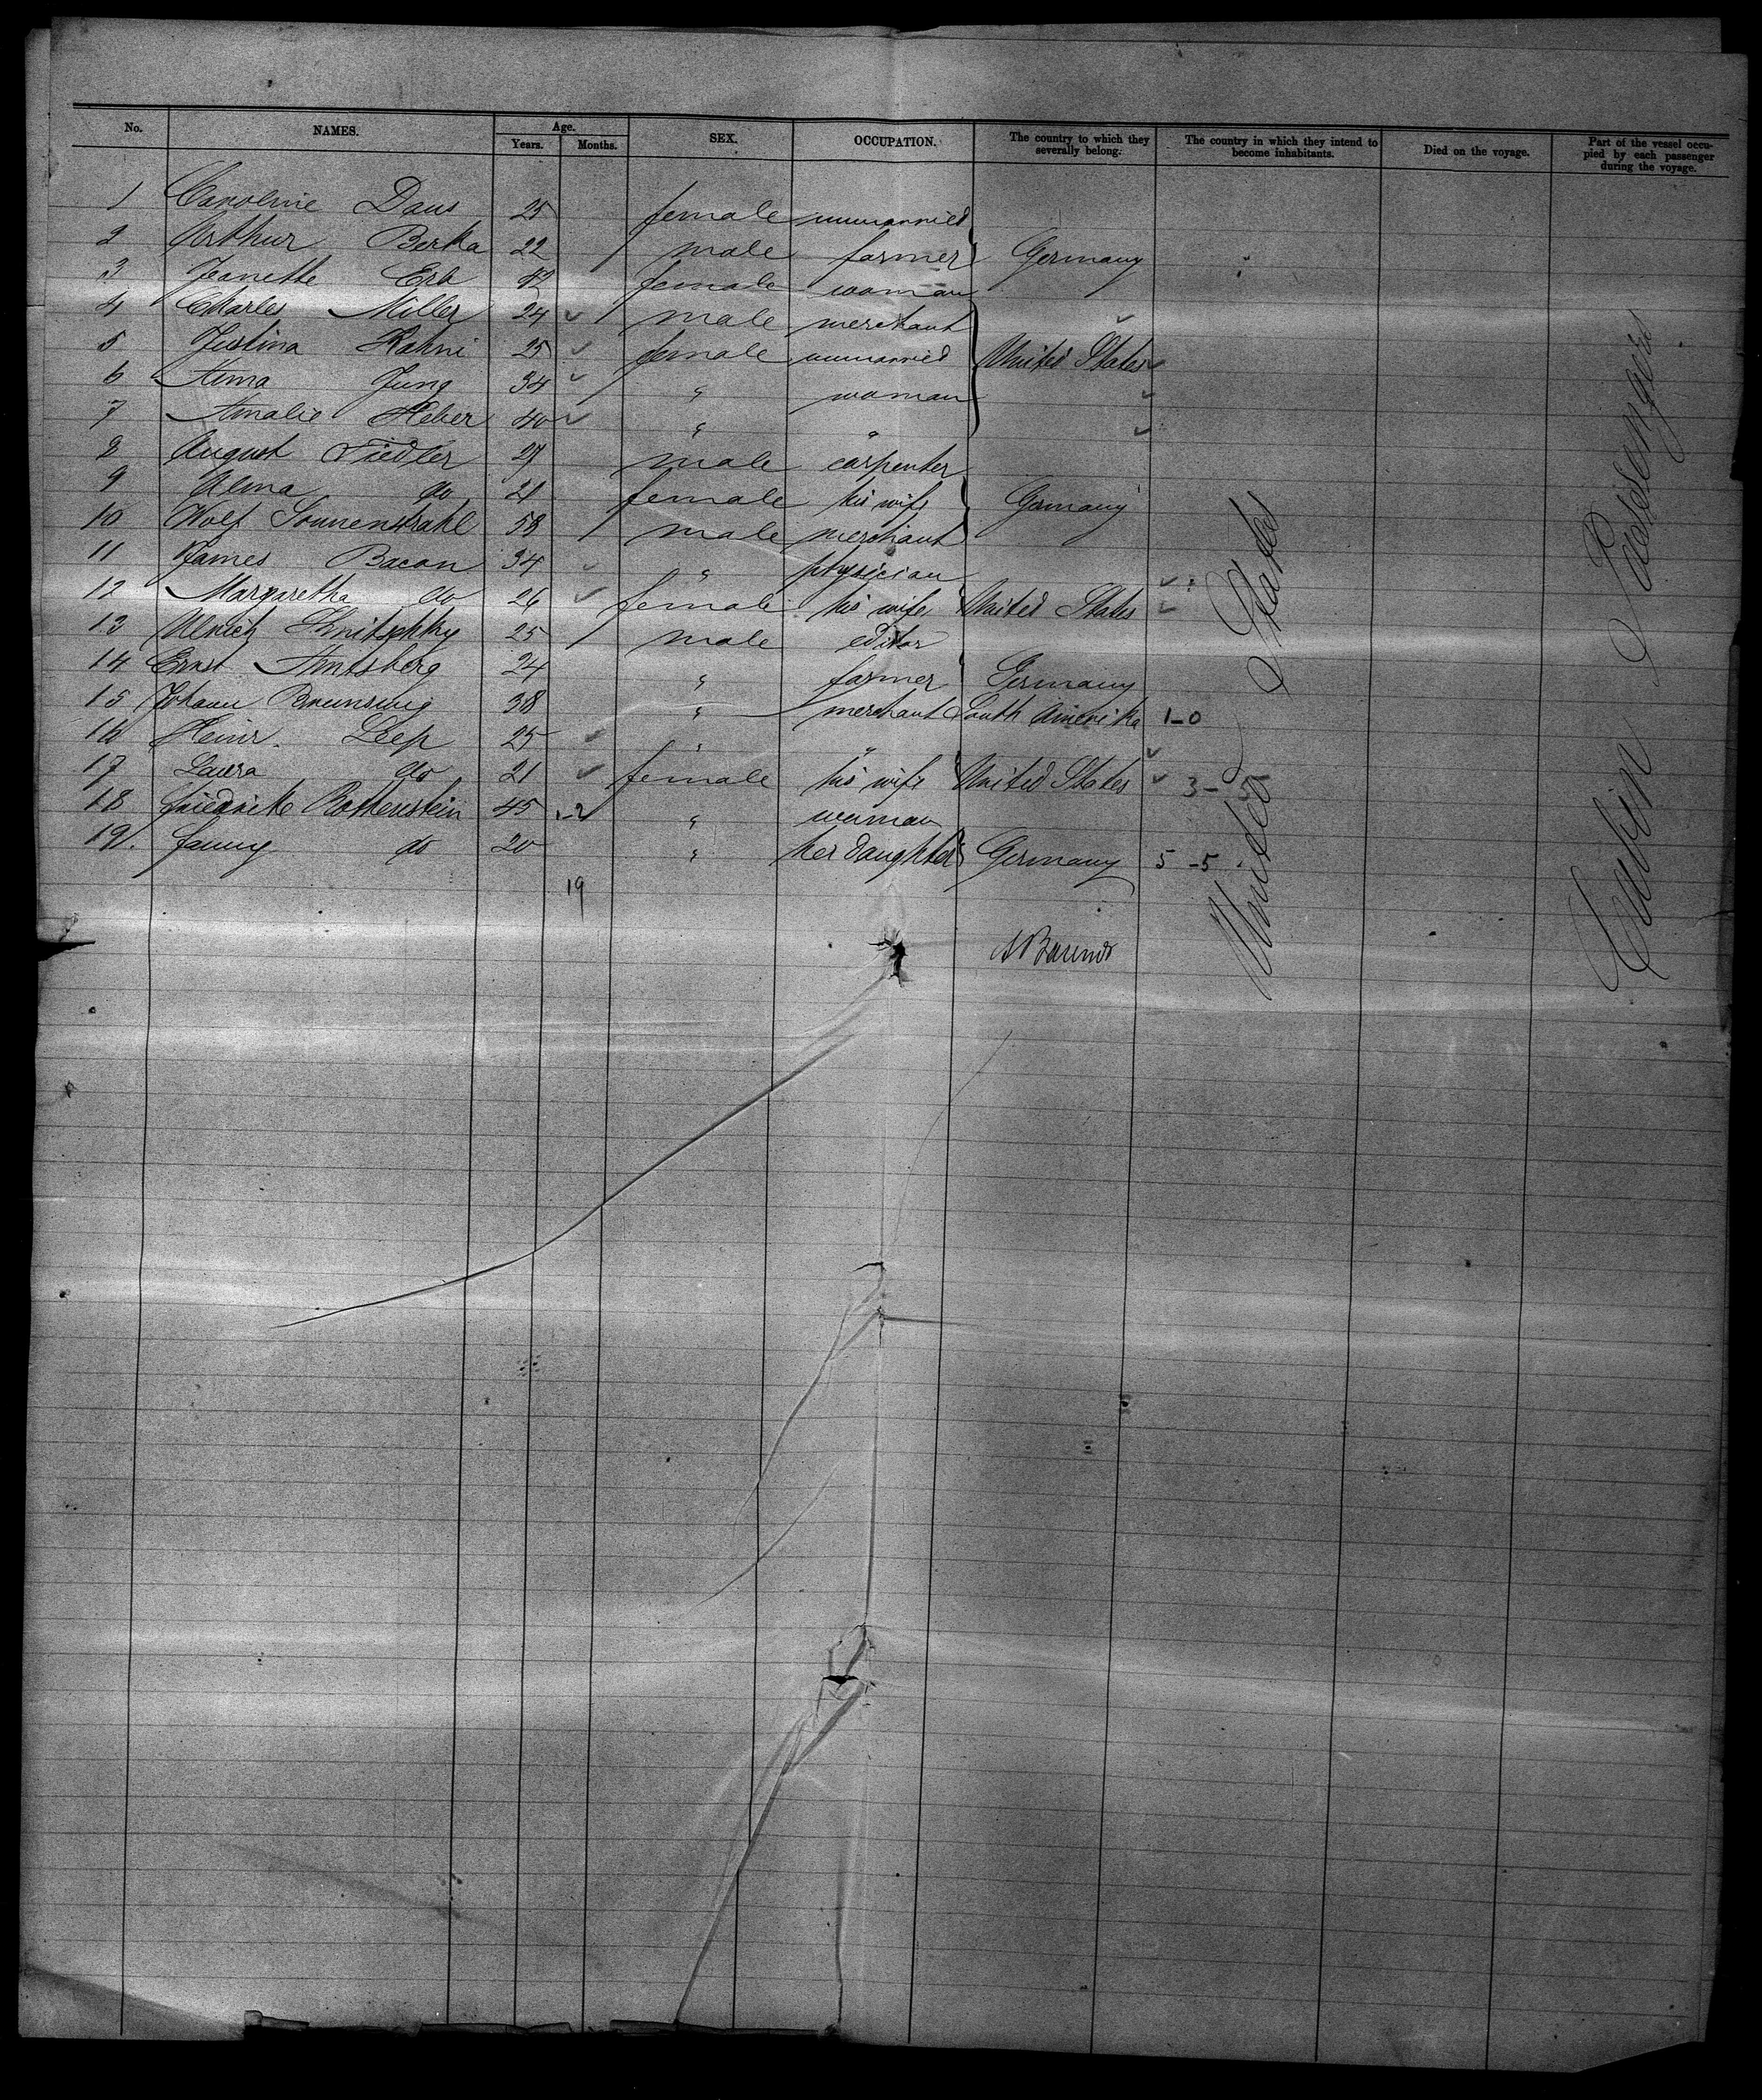 No. NAMES. Age. Years. Months. SEX. OCCUPATION. The country to which they severally belong. The country in which they intend to become inhabitants. Died on the voyage. Part of the vessel occupied by each passenger during the voyage.
1 Caroline Daus 25 female unmarried
2 Arthur Berka 22 male farmer Germany
3 Jeanette Erb female woman
4 Charles Miller 24 male merchant
5 Justina Hahni 25 female unmarried United States
6 Anna Jung 34 " woman
7 Amalie Heber 40 " "
8 August Fiedler 27 male carpenter
9 Alma do 21 female his wife Germany
10 Wolf Sonnenstrahl 58 male merchant
11 James Bacon 34 " physician
12 Margaretha do 26 female his wife United States
13 Ulrich 25 male editor
14 Ernst Amtsberg 24 " farmer Germany
15 Johann Brunswig 38 " merchant South Amerika 1-0
16 Heinr. Leep 25 " "
17 Laura do 21 female his wife United States 3-5
18 Friederike Rothenstein 45 " woman
19. Fanny do 20 " her daughter Germany 5-5
19
United States
Cabin Passengers